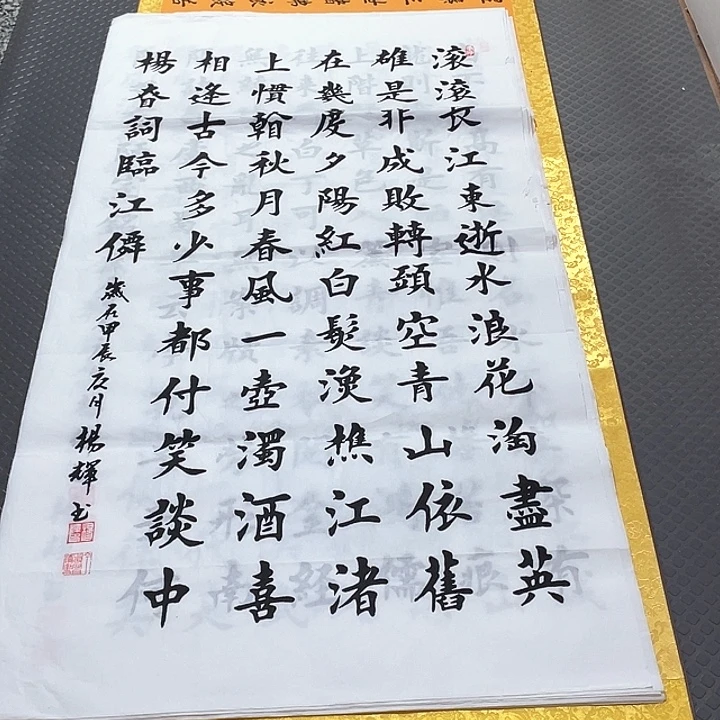 滾滾长江東逝水浪花淘盡英
雄是非成敗轉頭空青山依舊
在幾度夕陽紅白髮漁樵江渚
上慣翰秋月春風一壺濁酒喜
相逢古今多少事都付笑談中
楊昚詞臨江僊
歲在甲辰月楊輝书